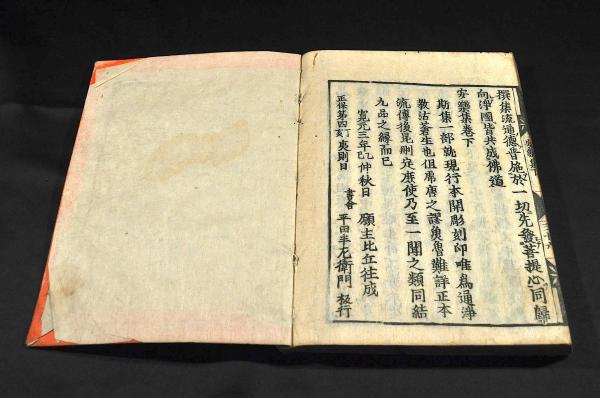 撰集流通德普施於一切先發菩提心同歸
向淨國皆共成佛道
安樂集卷下
斯集一部就現行本開彫刻印唯為通淨
教沾蒼生也但之謬魚魯難詳正本
流傳後昆刪定庶使乃至一聞之類同結
九品之緣而已
寬元三年乙巳仲秋日 願主比丘往成
正保第四丁亥夷則日 書舍 平田半左衛門 板行